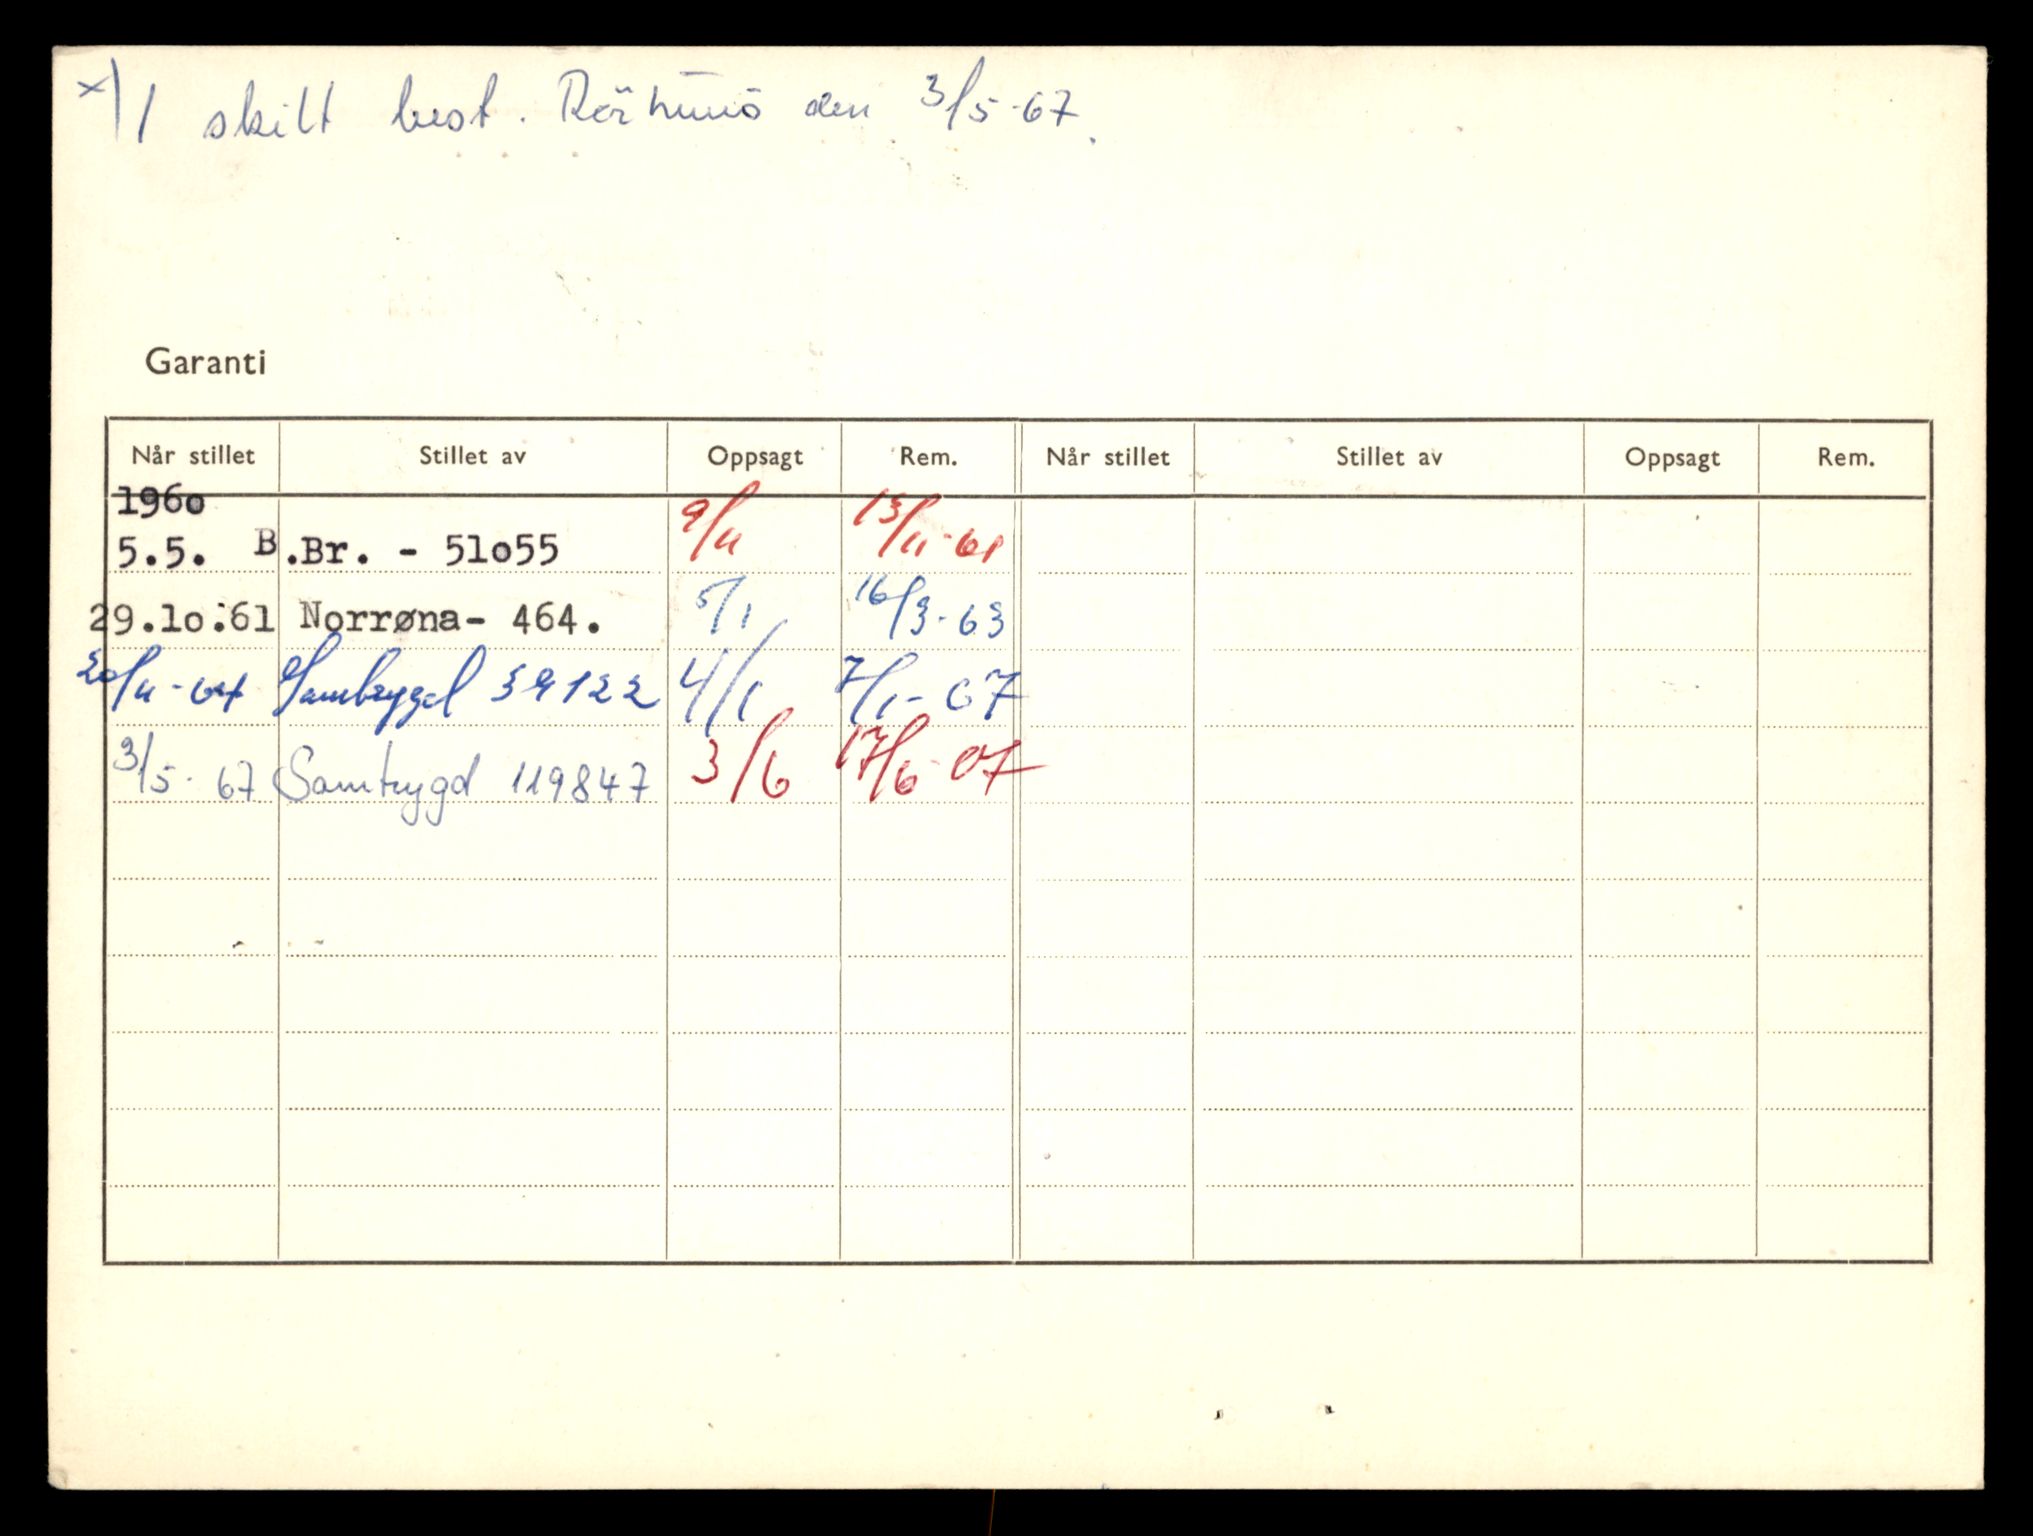 x) 1 skilt best. den 3/5-67.
Garanti
Når stillet Stillet av Oppsagt Rem. Når stillet Stillet av Oppsagt Rem.
1960
5.5. B.Br. - 51o55 9/11 13/11-61
29.1o.61 Norrøna- 464. 5/1 16/3-63
20/11-64 Samtrygd 59122 4/1 7/1-67
3/5-67 Samtrygd 119847 3/6 17/6-67